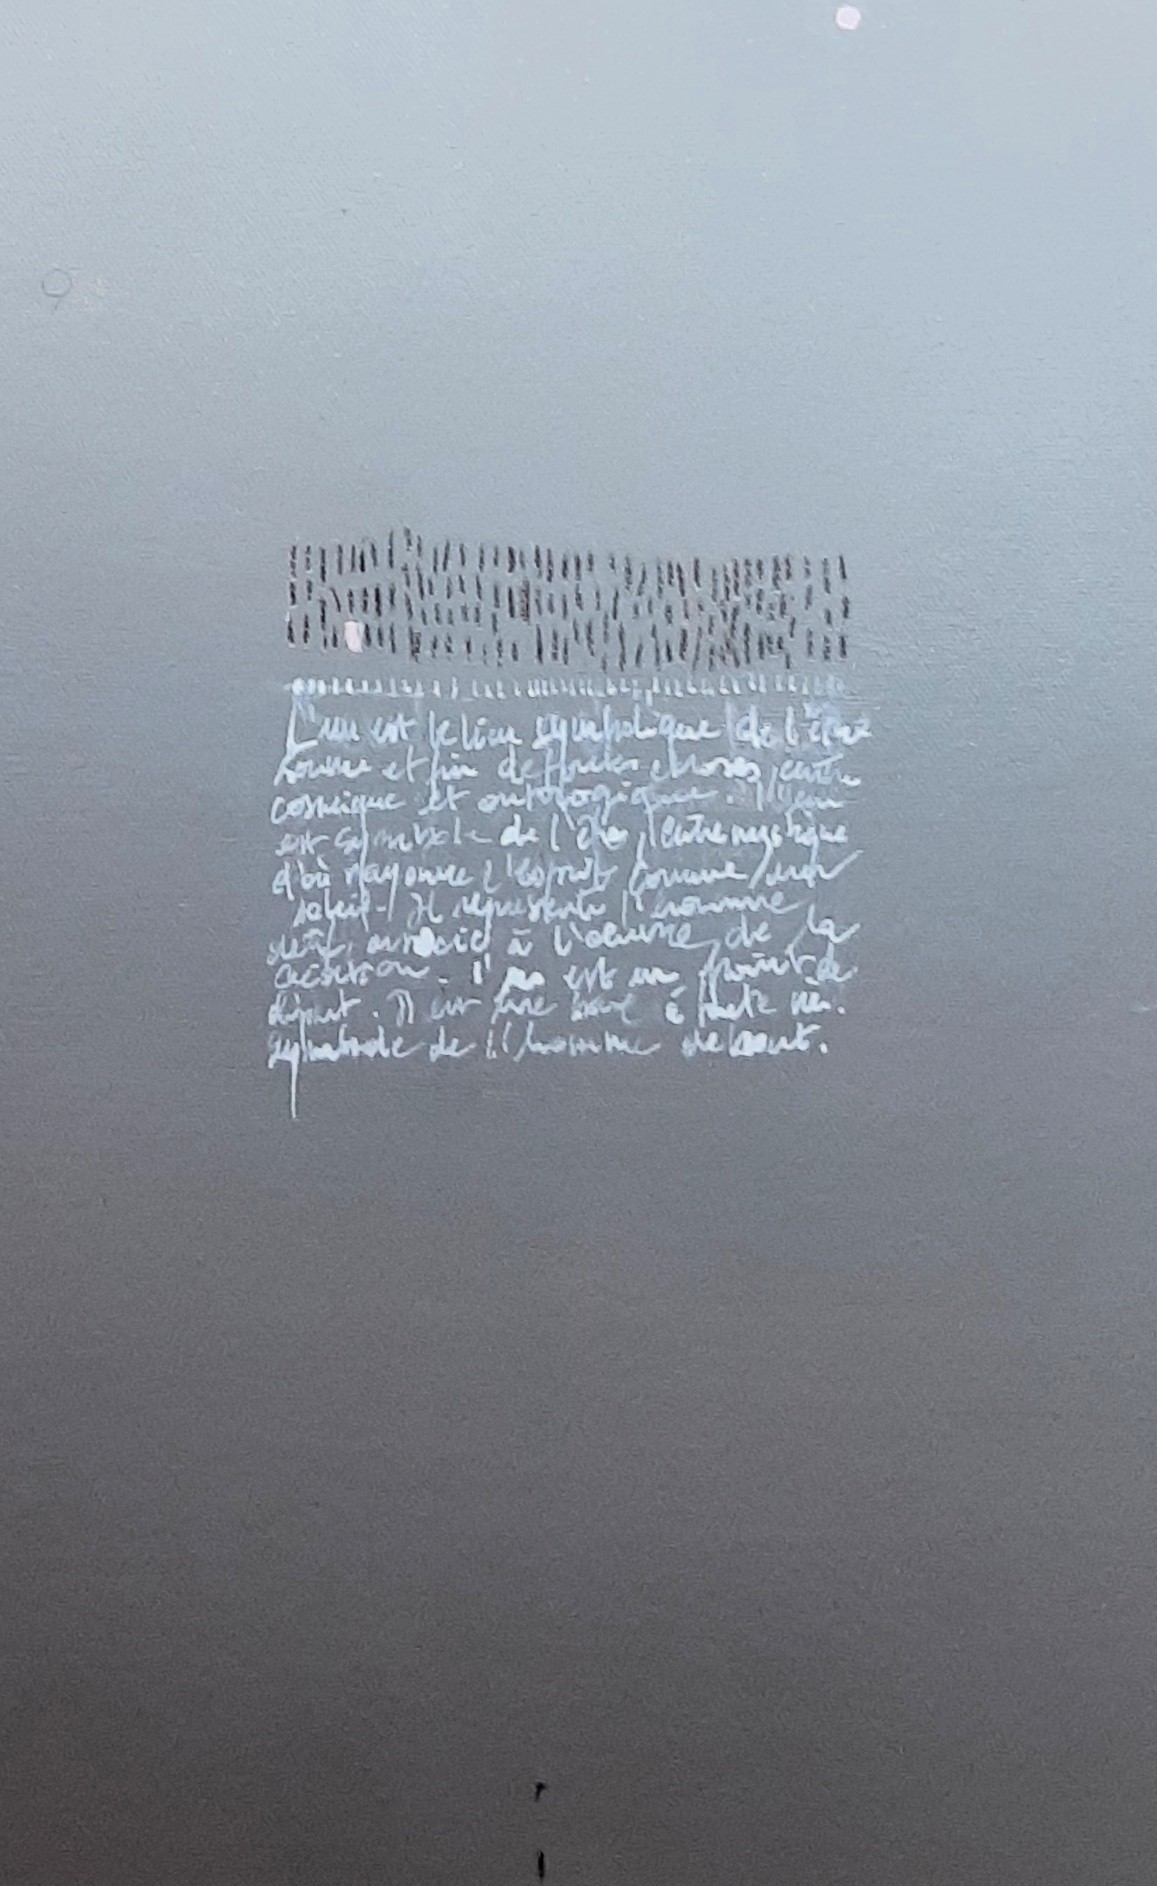 L'un est le lieu symbolique de l'être
source et fin de toutes choses, centre
cosmique et ontologique. L'un
est symbole de l'être, centre mystique
d'où rayonne l'esprit comme un
soleil. Il représente l'homme
associé à l'œuvre de la
création. l'un est un point de
départ. Il est une base à toute vie.
symbole de l'homme debout.